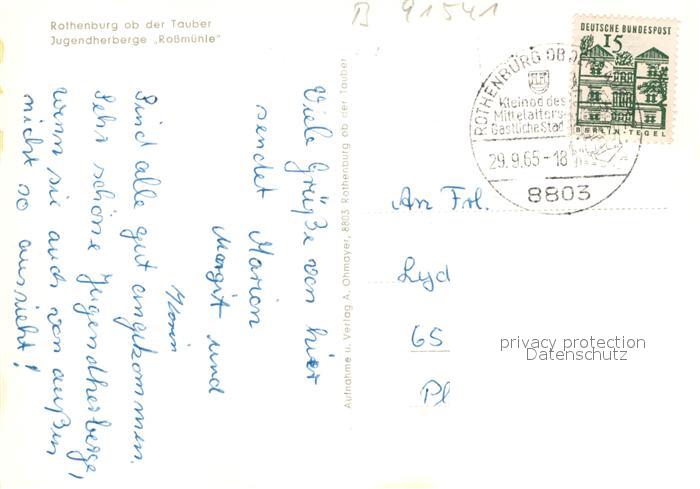 B 91541
Rothenburg ob der Tauber
Jugendherberge „Roßmühle"
DEUTSCHE BUNDESPOST
15
BERLIN-TEGEL
ROTHENBURG OB DER
Kleinod des
Mittelalters-
Gastliche Stadt
29.9.65-18
8803
Viele Grüße von hier
sendet Marion
Margit und
Karin
Sind alle gut angekommen.
Sehr schöne Jugendherberge,
wenn sie auch von außen
nicht so aussieht!
Aufnahme u. Verlag A. Ohmayer, 8803 Rothenburg ob der Tauber
An Frl.
Lyd
65
Pl
privacy protection
Datenschutz